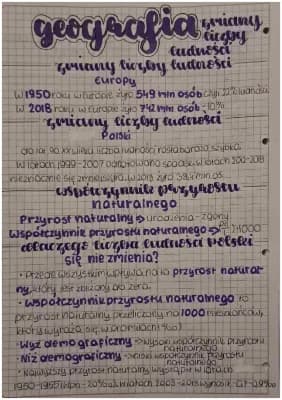 geografia zmiany
liczby
ludności
zmiany liczby ludności
Europy
W 1950 roku w Europie żyło 549 mln osób czyli 22% ludności
W 2018 roku w Europie żyło 742 mln osób - 10%
zmiany liczby ludności
Polski
do lat 90. XX wieku liczba ludności rosła bardzo szybko.
W latach 1999-2007 odnotowano spadek, w latach
nieznacznie się zmniejszyła. w 2018 żyło 38,4 mln os.
współczynnik przyrostu
naturalnego
Przyrost naturalny ⇒ urodzenia - zgony
Współczynnik przyrostu naturalnego ⇒ 1000
dlaczego liczba ludności Polski
się nie zmienia?
• Przede wszystkim wpływa na to przyrost natural-
ny, który jest zbliżony do zera.
• Współczynnik przyrostu naturalnego to
przyrost naturalny przeliczony na 1000 mieszkańców,
który wyraża się w promilach (‰)
• Wyż demograficzny → wysoki współczynnik przyrostu
naturalnego
• Niż demograficzny → niski współczynnik przyrostu
naturalnego
• Największy przyrost naturalny wystąpił w latach
1950-1955 i w latach 2003-2018 wynosił